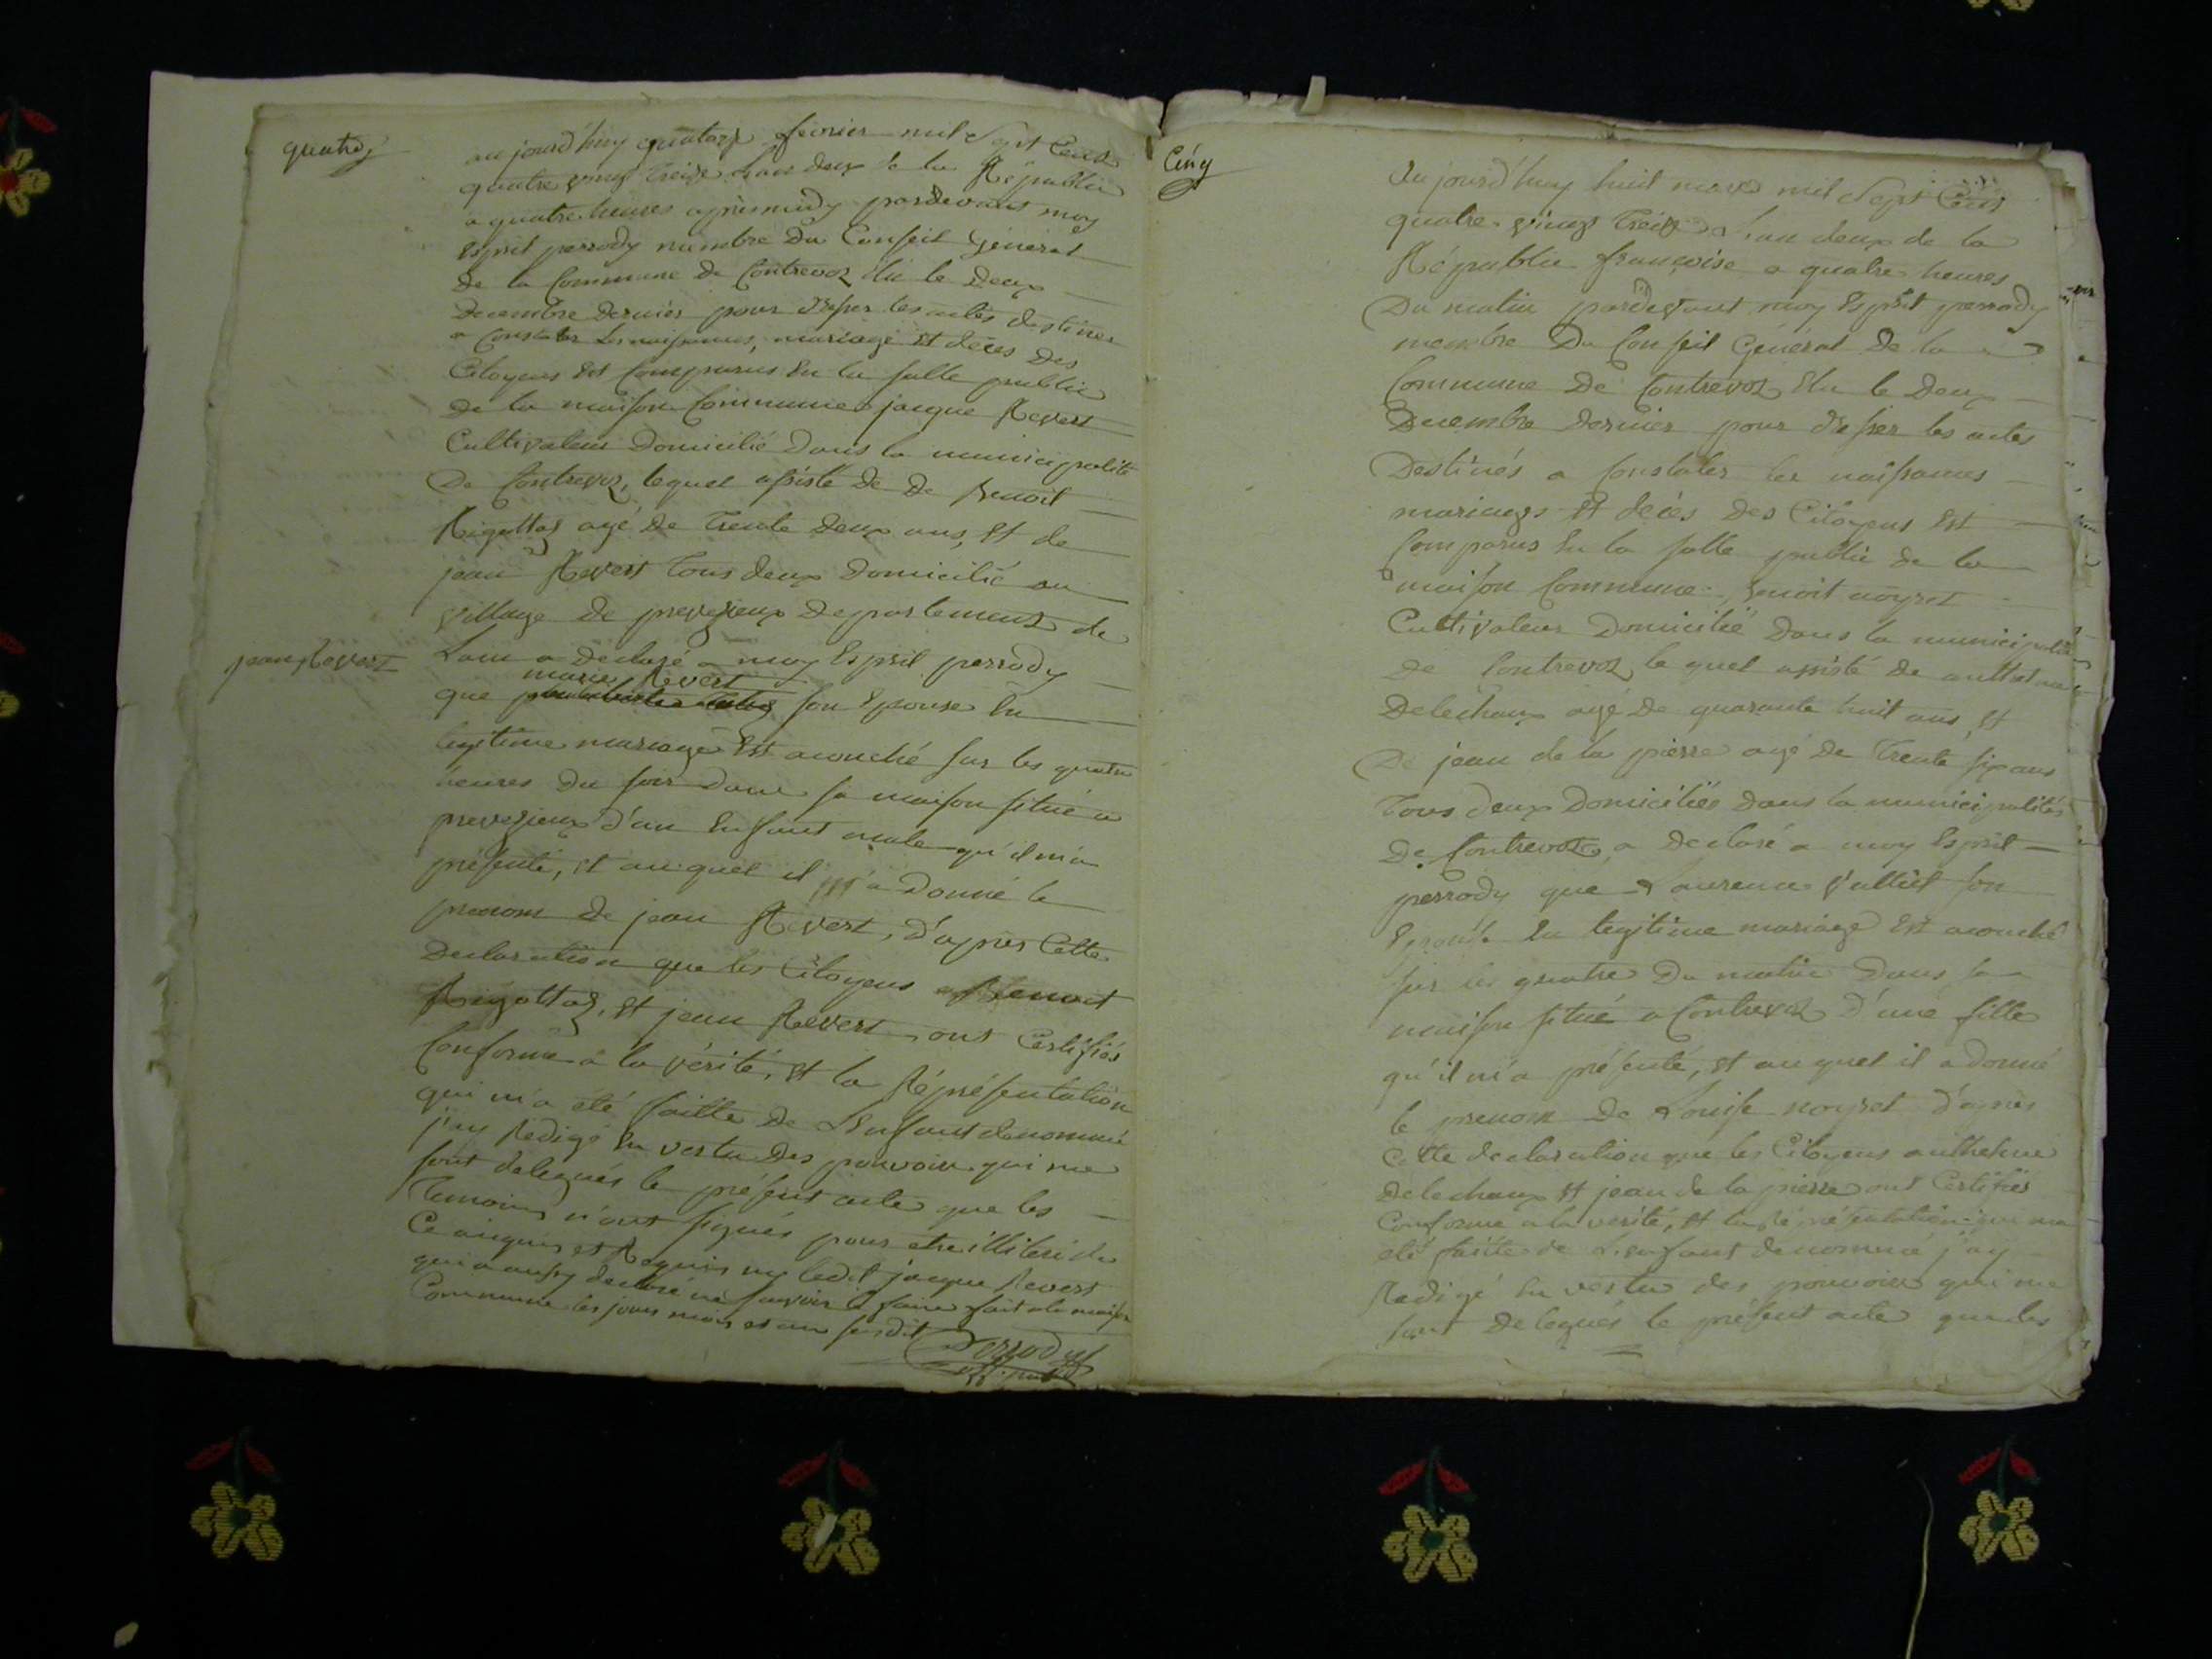 quatre
au jourd'huy quatorze fevrier mil Sept Cens
quatre vingt treize l'an deux de la Républic
a quatre heures aprèsmidy pardevant moy
Esprit perrody membre du Conseil Général
de la Commune de Contrevoz élu le deux
Decembre dernier pour dresser les actes destinés
a Constater les naissances, mariage Et décès des
Citoyens Est Comparus En la salle public
de la maison Commune jacque Revert
Cultivateur Domicilié Dans la municipalité
De Contrevoz, lequel assisté de De Benoit
Rigottaz agé De trente deux ans, Et de
jean Revert tous deux Domicilié au
village de preveyzieux Departement de
jean Revert
Lain a declaré a moy Esprit perrody
marie Revert
que son Epouse En
legitime mariage Est acouché sur les quatre
heures du soir dans sa maison situé a
preveyzieux d'un Enfant male qu'il m'a
présenté, Et au quel il a Donné le
prenom de jean Revert, d'apres Cette
Declaration que les Citoyens Benoit
Rigottaz, Et jean Revert ont Certifiés
Conforme a la vérité, Et la Réprésentation
qui m'a été faitte De L'Enfant denommé
j'ay Redigé En vertu Des pouvoirs qui me
sont delegués le présent acte que les
Temoins n'ont signés pour etre illiteré de
Ce anquis et Requis ny ledit jacque Revert
qui a aussy declaré ne savoir le faire fait a la maison
Commune les jours mois et an susdit
Perrody
off. public
Cinq
Au jourd'huy huit mars mil Sept Cens
quatre vingt Treize L'an deux de la
Républic françoise a quatre heures
Du matin pardevant moy Esprit perrody
membre Du Conseil Général De la
Commune De Contrevoz Elu le Deux
Decembre Dernier pour dresser les actes
Destinés a Constater les naissances
mariages Et décès Des Citoyens Est
Comparus En la salle public de la
maison Commune Benoit noyret
Cultivateur Domicilié Dans la municipalité
De Contrevoz le quel assisté de
Delechaux agé De quarante huit ans, Et
De jean de la pierre agé De Trente six ans
Tous deux Domiciliés dans la municipalités
De Contrevoz a declaré a moy Esprit
perrody que Laurence Vulliet son
Epouse En legitime mariage Est acouché
sur les quatre Du matin Dans sa
maison situé a Contrevoz D'une fille
qu'il m'a présenté, Et au quel il a donné
le prenom De Louise noyret d'apres
Cette declaration que les Citoyens anthelme
Delechaux Et jean de la pierre ont Certifiés
Conforme a la verité, Et la Réprésentation qui ma
été faitte de L'enfant denommé j'ay
Redigé En vertu des pouvoirs qui me
sont Delegués le présent acte que les